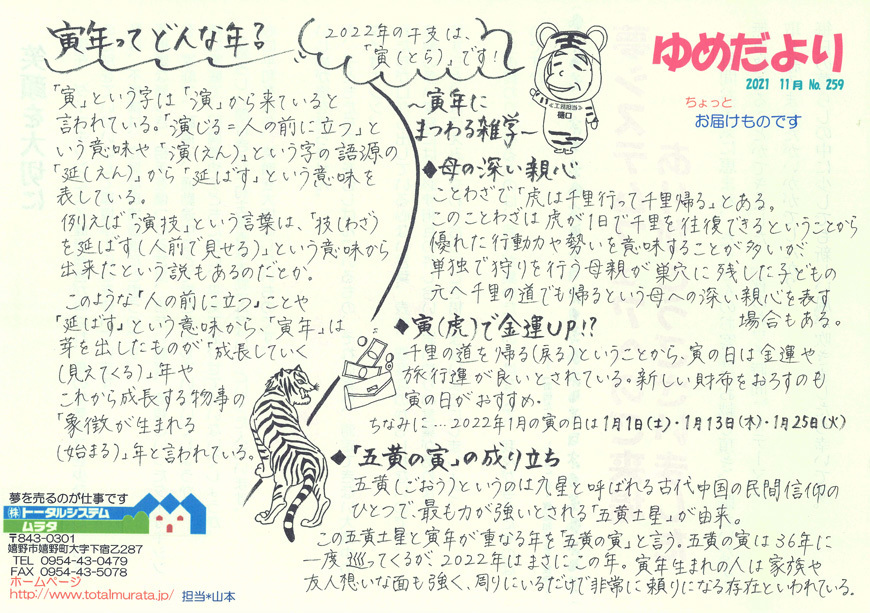 寅年ってどんな年?
2022年の干支は、
「寅(とら)」です!
ゆめだより
2021 11月 No. 259
ちょっと
お届けものです
<工務担当>
樋口
「寅」という字は「演」から来ていると
言われている。「演じる=人の前に立つ」と
いう意味や「演(えん)」という字の語源の
「延(しえん)」から「延ばす」という意味を
表している。
例えば「演技」という言葉は、「技(わざ)
を延ばす(人前で見せる)」という意味から
出来たという説もあるのだとか。
このような「人の前に立つ」ことや
「延ばす」という意味から、「寅年」は
芽を出したものが「成長していく
(見えてくる)」年や
これから成長する物事の
「象徴が生まれる
(始まる)」年と言われている。
〜寅年に
まつわる雑学〜
◆母の深い親心
ことわざで「虎は千里行って千里帰る」とある。
このことわざは虎が1日で千里を往復できるということから
優れた行動力や勢いを意味することが多いが、
単独で狩りを行う母親が巣穴に残した子どもの
元へ千里の道でも帰るという母への深い親心を表す
場合もある。
◆寅(虎)で金運UP!?
千里の道を帰る(戻る)ということから、寅の日は金運や
旅行運が良いとされている。新しい財布をおろすのも
寅の日がおすすめ。
ちなみに…2022年1月の寅の日は1月1日(土)・1月13日(木)・1月25日(火)
◆「五黄の寅」の成り立ち
五黄(ごおう)というのは九星と呼ばれる古代中国の民間信仰の
ひとつで、最も力が強いとされる「五黄土星」が由来。
この五黄土星と寅年が重なる年を「五黄の寅」と言う。五黄の寅は36年に
一度巡ってくるが、2022年はまさにこの年。寅年生まれの人は家族や
友人想いな面も強く、周りにいるだけで非常に頼りになる存在といわれている。
夢を売るのが仕事です
㈱トータルシステム
ムラタ
〒843-0301
嬉野市嬉野町大字下宿乙287
TEL 0954-43-0479
FAX 0954-43-5078
ホームページ
http://www.totalmurata.jp/ 担当*山本